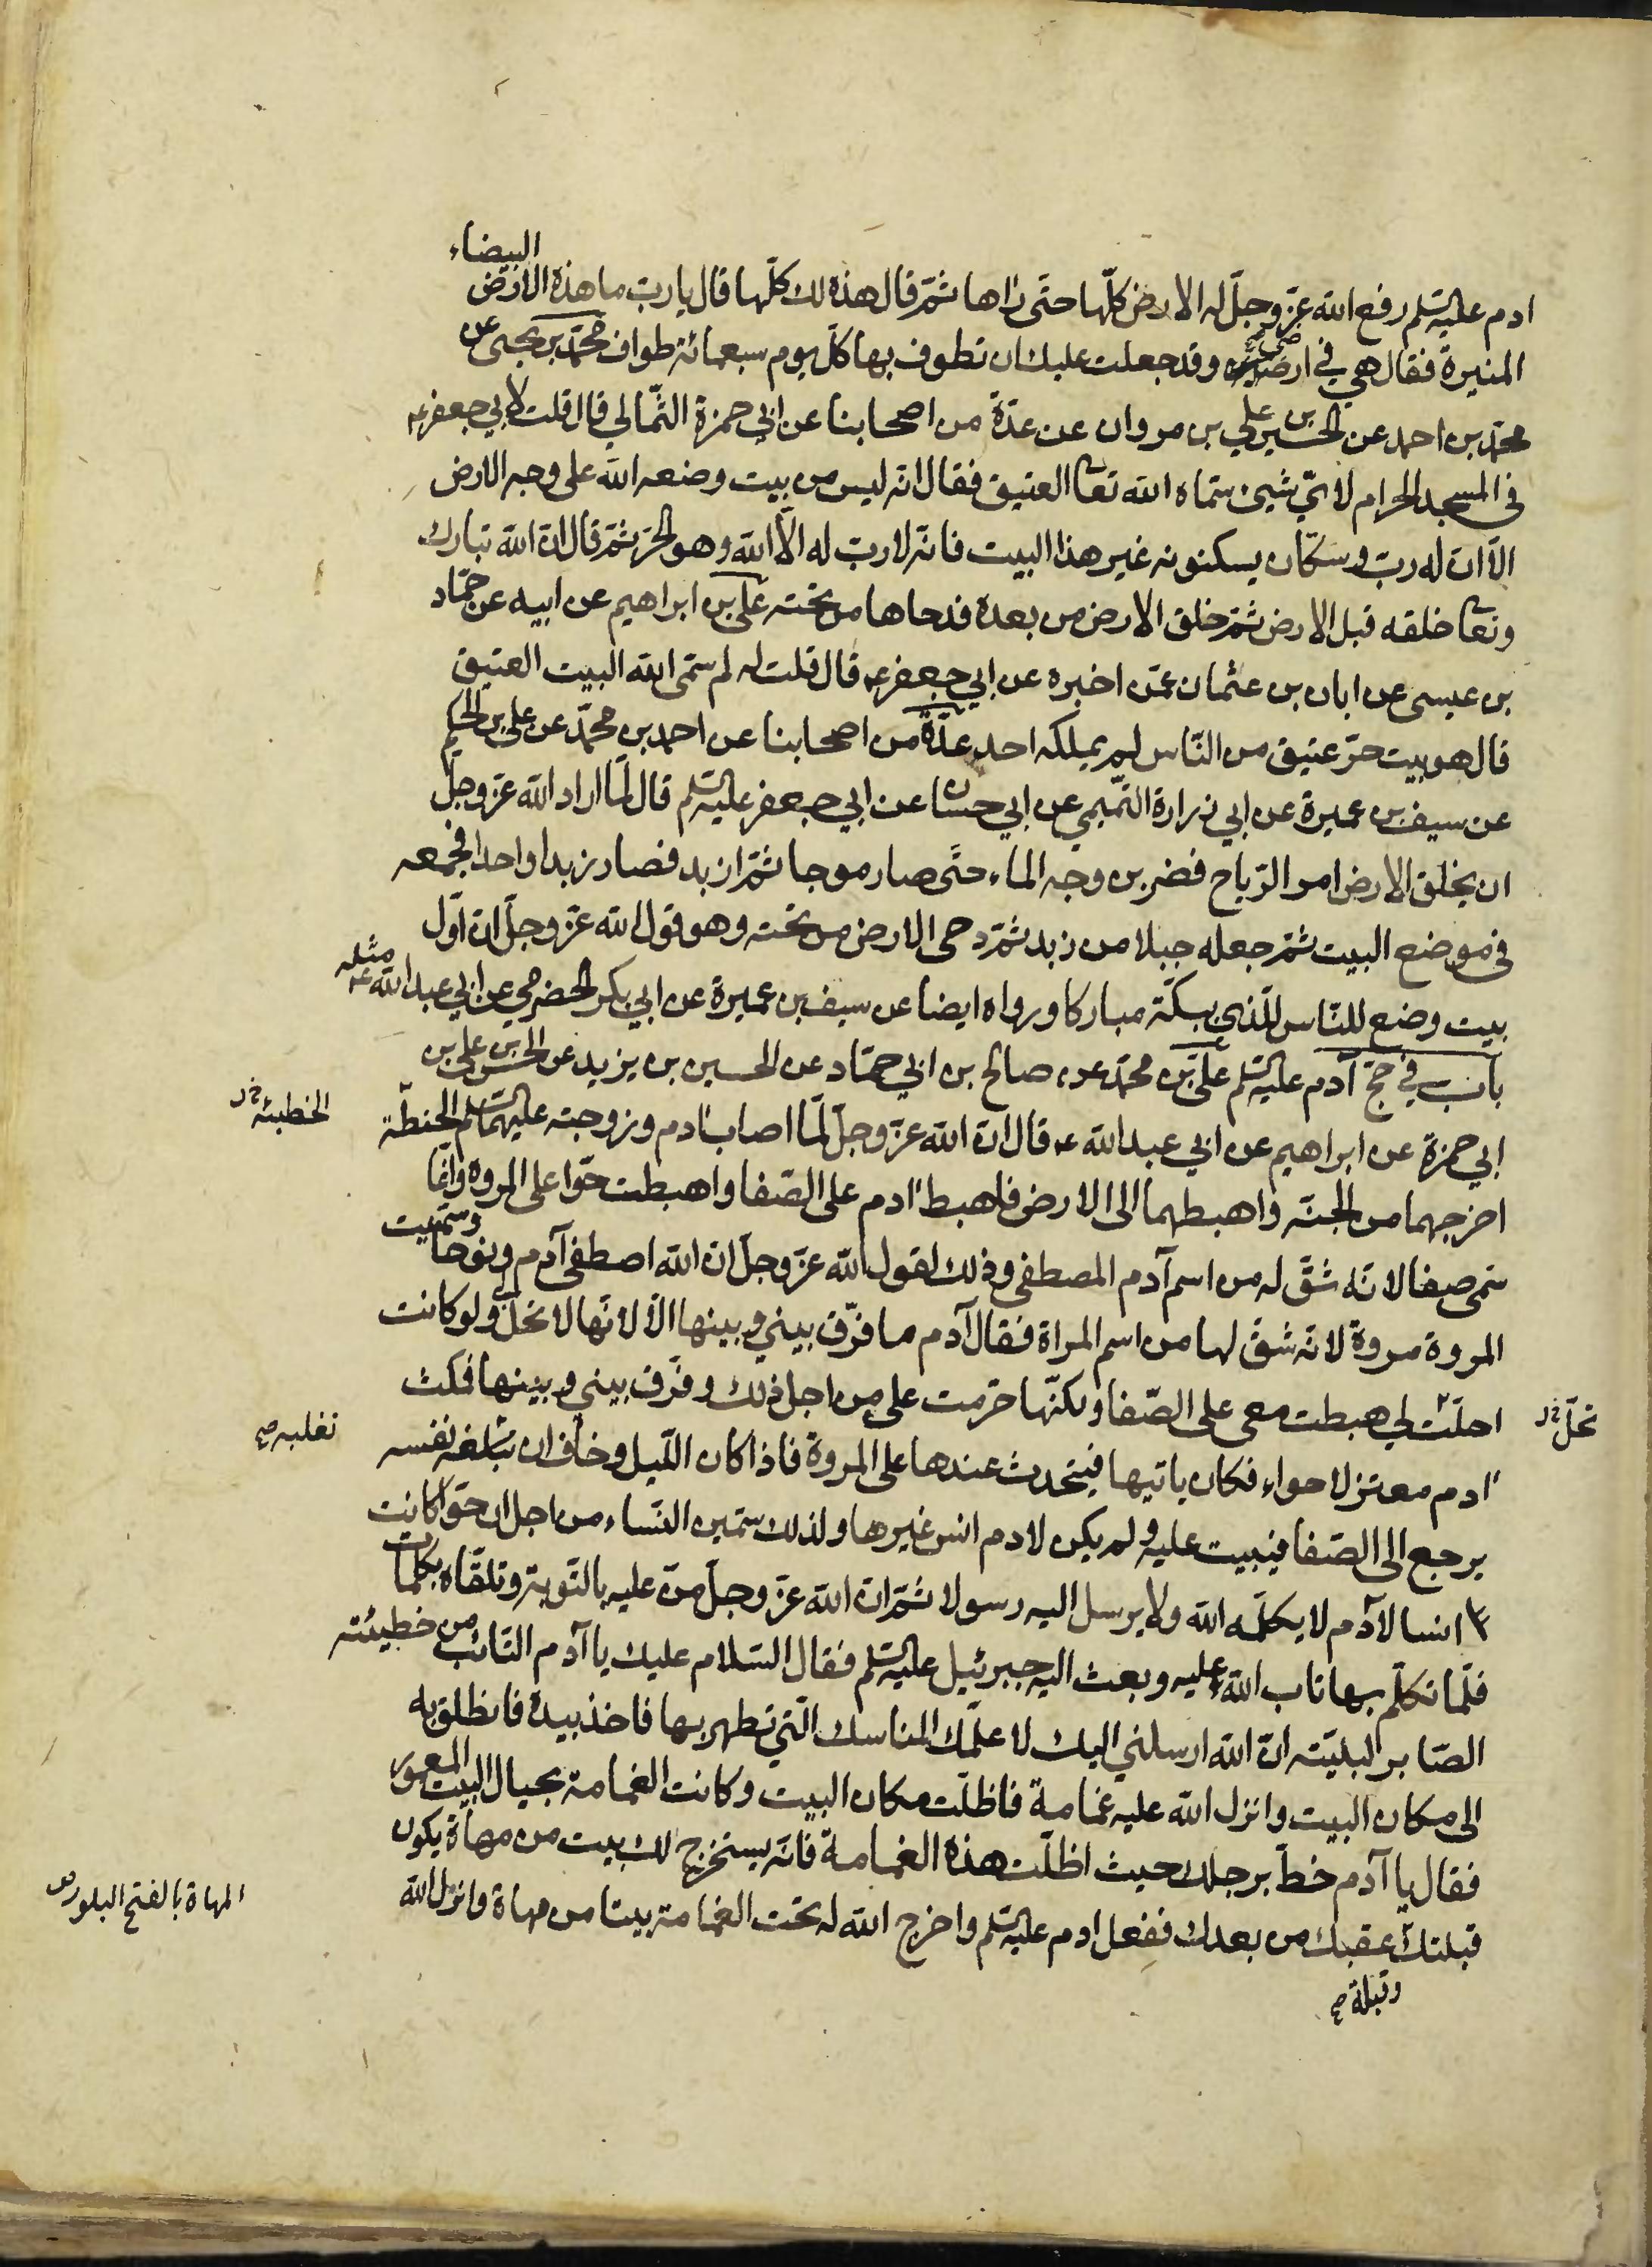 البيضاء
ادم عليه السلم رفع الله عزّ وجلّ له الارض كلّها حتّى راها ثمّ قال هذه لك كلّها قال يا ربّ ما هذه الارض
المنيرة فقال هي في ارضي وقد جعلت عليك ان تطوف بها كلّ يوم سبعمائة طواف محمّد بن يحيى عن
محمّد بن احمد عن الحسين بن علي بن مروان عن عدّة من اصحابنا عن ابي حمزة الثّمالي قال قلت لابي جعفر ع
في المسجد الحرام لايّ شيئ سمّاه الله تعا العتيق فقال انّه ليس من بيت وضعه الله على وجه الارض
الّا انّ له ربّ وسكّان يسكنونه غير هذا البيت فانّه لا ربّ له الّا الله وهو الحرّ ثمّ قال انّ الله تبارك
وتعا خلقه قبل الارض ثمّ خلق الارض من بعده فدحاها من تحته علي بن ابراهيم عن ابيه عن حمّاد
بن عيسى عن ابان بن عثمان عمّن اخبره عن ابي جعفر ع قال قلت له لم سمّى الله البيت العتيق
قال هو بيت حرّ عتيق من النّاس لم يملكه احد عدّة من اصحابنا عن احمد بن محمّد عن علي بن الحكم
عن سيف بن عميرة عن ابي زرارة التّميمي عن ابي حسّان عن ابي جعفر عليه السلم قال لمّا اراد الله عزّ وجلّ
ان يخلق الارض امر الرّياح فضربن وجه الماء حتّى صار موجا ثمّ ازبد فصار زبدا واحدا فجمعه
في موضع البيت ثمّ جعله جبلا من زبد ثمّ دحى الارض من تحته وهو قول الله عزّ وجلّ انّ اوّل
بيت وضع للنّاس للّذي ببكّة مباركا ورواه ايضا عن سيف بن عميرة عن ابي بكر الحضرمي عن ابي عبد الله ع مثله
باب في حجّ آدم عليه السلم علي بن محمّد عن صالح بن ابي حمّاد عن الحسين بن يزيد عن الحسن بن علي بن
ابي حمزة عن ابراهيم عن ابي عبد الله ع قال انّ الله عزّ وجلّ لمّا اصاب آدم وزوجته عليهما السلم الحنطة
الخطيئة خ ر
اخرجهما من الجنّة واهبطهما الى الارض فاهبط آدم على الصّفا واهبطت حوّا على المروة وانّما
سمّى صفا لانّه شقّ له من اسم آدم المصطفى وذلك لقول الله عزّ وجلّ انّ الله اصطفى آدم ونوحا وسمّيت
المروة مروة لانّه شقّ لها من اسم المراة فقال آدم ما فرّق بيني وبينها الّا لانّها لا تحلّ لي ولو كانت
تحلّ خ ر
احلّت لي هبطت معي على الصّفا ولكنّها حرّمت علي من اجل ذلك وفرّق بيني وبينها فمكث
آدم معتزلا حواء فكان ياتيها فيتحدث عندها على المروة فاذا كان اللّيل وخاف ان تبلغه نفسه
تغلبه ص
يرجع الى الصّفا فيبيت عليه ولم يكن لادم انس غيرها ولذلك سمّين النّساء من اجل ان حوّا كانت
انسا لآدم لا يكلّمه الله ولا يرسل اليه رسولا ثمّ انّ الله عزّ وجلّ منّ عليه بالتّوبة وتلقّاه بكلمات
فلمّا تكلّم بها تاب الله عليه وبعث اليه جبرئيل عليه السلم فقال السّلام عليك يا آدم التّائب من خطيئته
الصّابر لبليّته انّ الله ارسلني اليك لاعلّمك المناسك الّتي تطهر بها فاخذ بيده فانطلق به
الى مكان البيت وانزل الله عليه غمامة فاظلّت مكان البيت وكانت الغمامة بحيال البيت المعمور
فقال يا آدم خطّ برجلك حيث اظلّت هذه الغمامة فانّه يستخرج لك بيت من مهاة يكون
قبلتك عقبك من بعدك ففعل ادم عليه السلم واخرج الله له تحت الغمامة بيتا من مهاة وانزل الله
المهاة بالفتح البلور ص
وقبلة ص